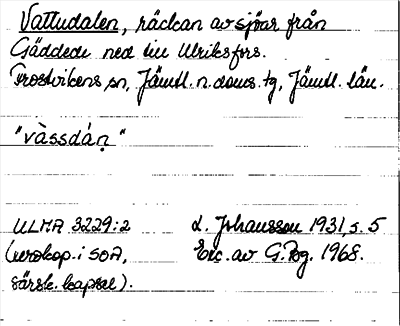 Vattudalen, räckan av sjöar från
Gäddede ned till Ulriksfors.
Frostvikens sn, Jämtl. n. doms. tg, Jämtl. län.
"vàssdáṇ"
ULMA 3229:2
(xerokop. i SOA,
särsk. kapsel).
L. Johansson 1931, s. 5
Exc. av G. Pbg. 1968.